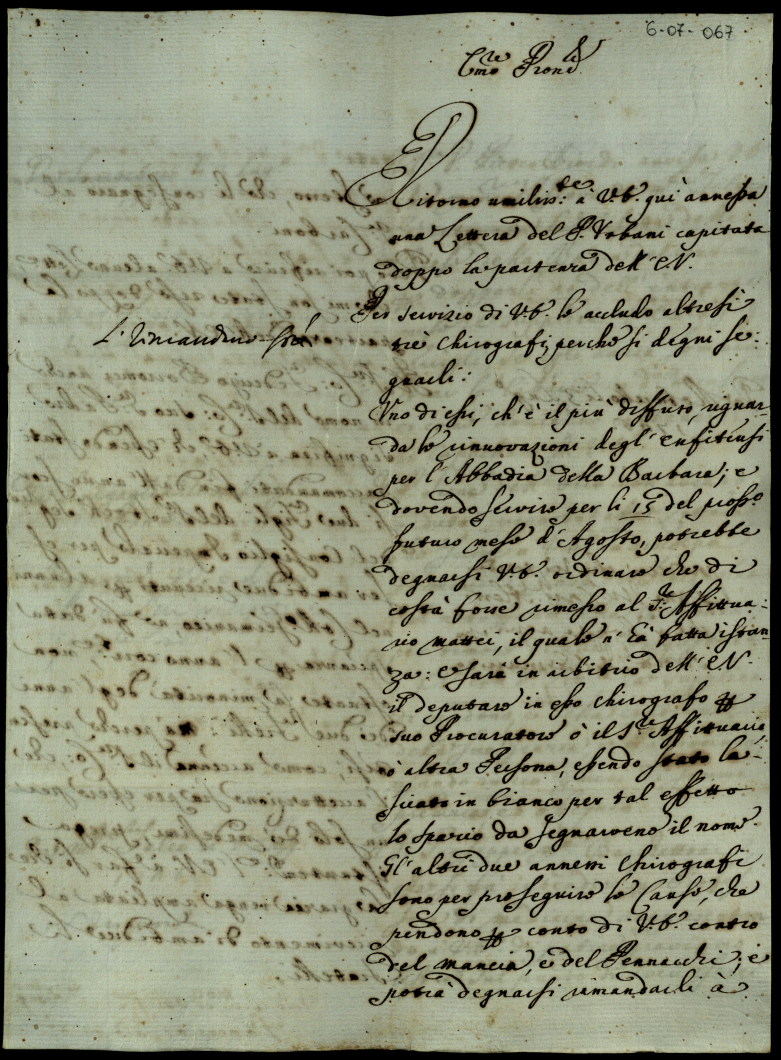 6-07-067
Em.re P̃ron.e
Ritorno umilis.te à V.E. quì annessa
una Lettera del P. Urbani capitata
doppo la partenza dell'E.V.
Per servizio di V.E. le accludo altresì
trè Chirografi, perche si degni se:
gnarli:
Uno di essi, ch'è il più diffuso, riguar-
da le rinnovazioni degl'enfiteusi
per l'Abbadia della Barbara; e
dovendo servire per li 15 del pross.o
futuro mese d'Agosto, potrebbe
degnarsi V.E. ordinare che di
costà fosse rimesso al S.re Affittua:
rio Mattei, il quale n'hà fatta istan-
za: e sarà in arbitrio dell'E.V.
il deputare in esso Chirografo p
suo Procuratore ò il S.re Affittuario,
ò altra Persona, essendo stato la-
sciato in bianco per tal effetto
lo spazio da segnarvene il nome.
Gl'altri due annessi Chirografi
sono per proseguire le Cause, che
pendono p conto di V.E. contro
del Mancia, e del Pennacchi; e
potrà degnarsi rimandarli à